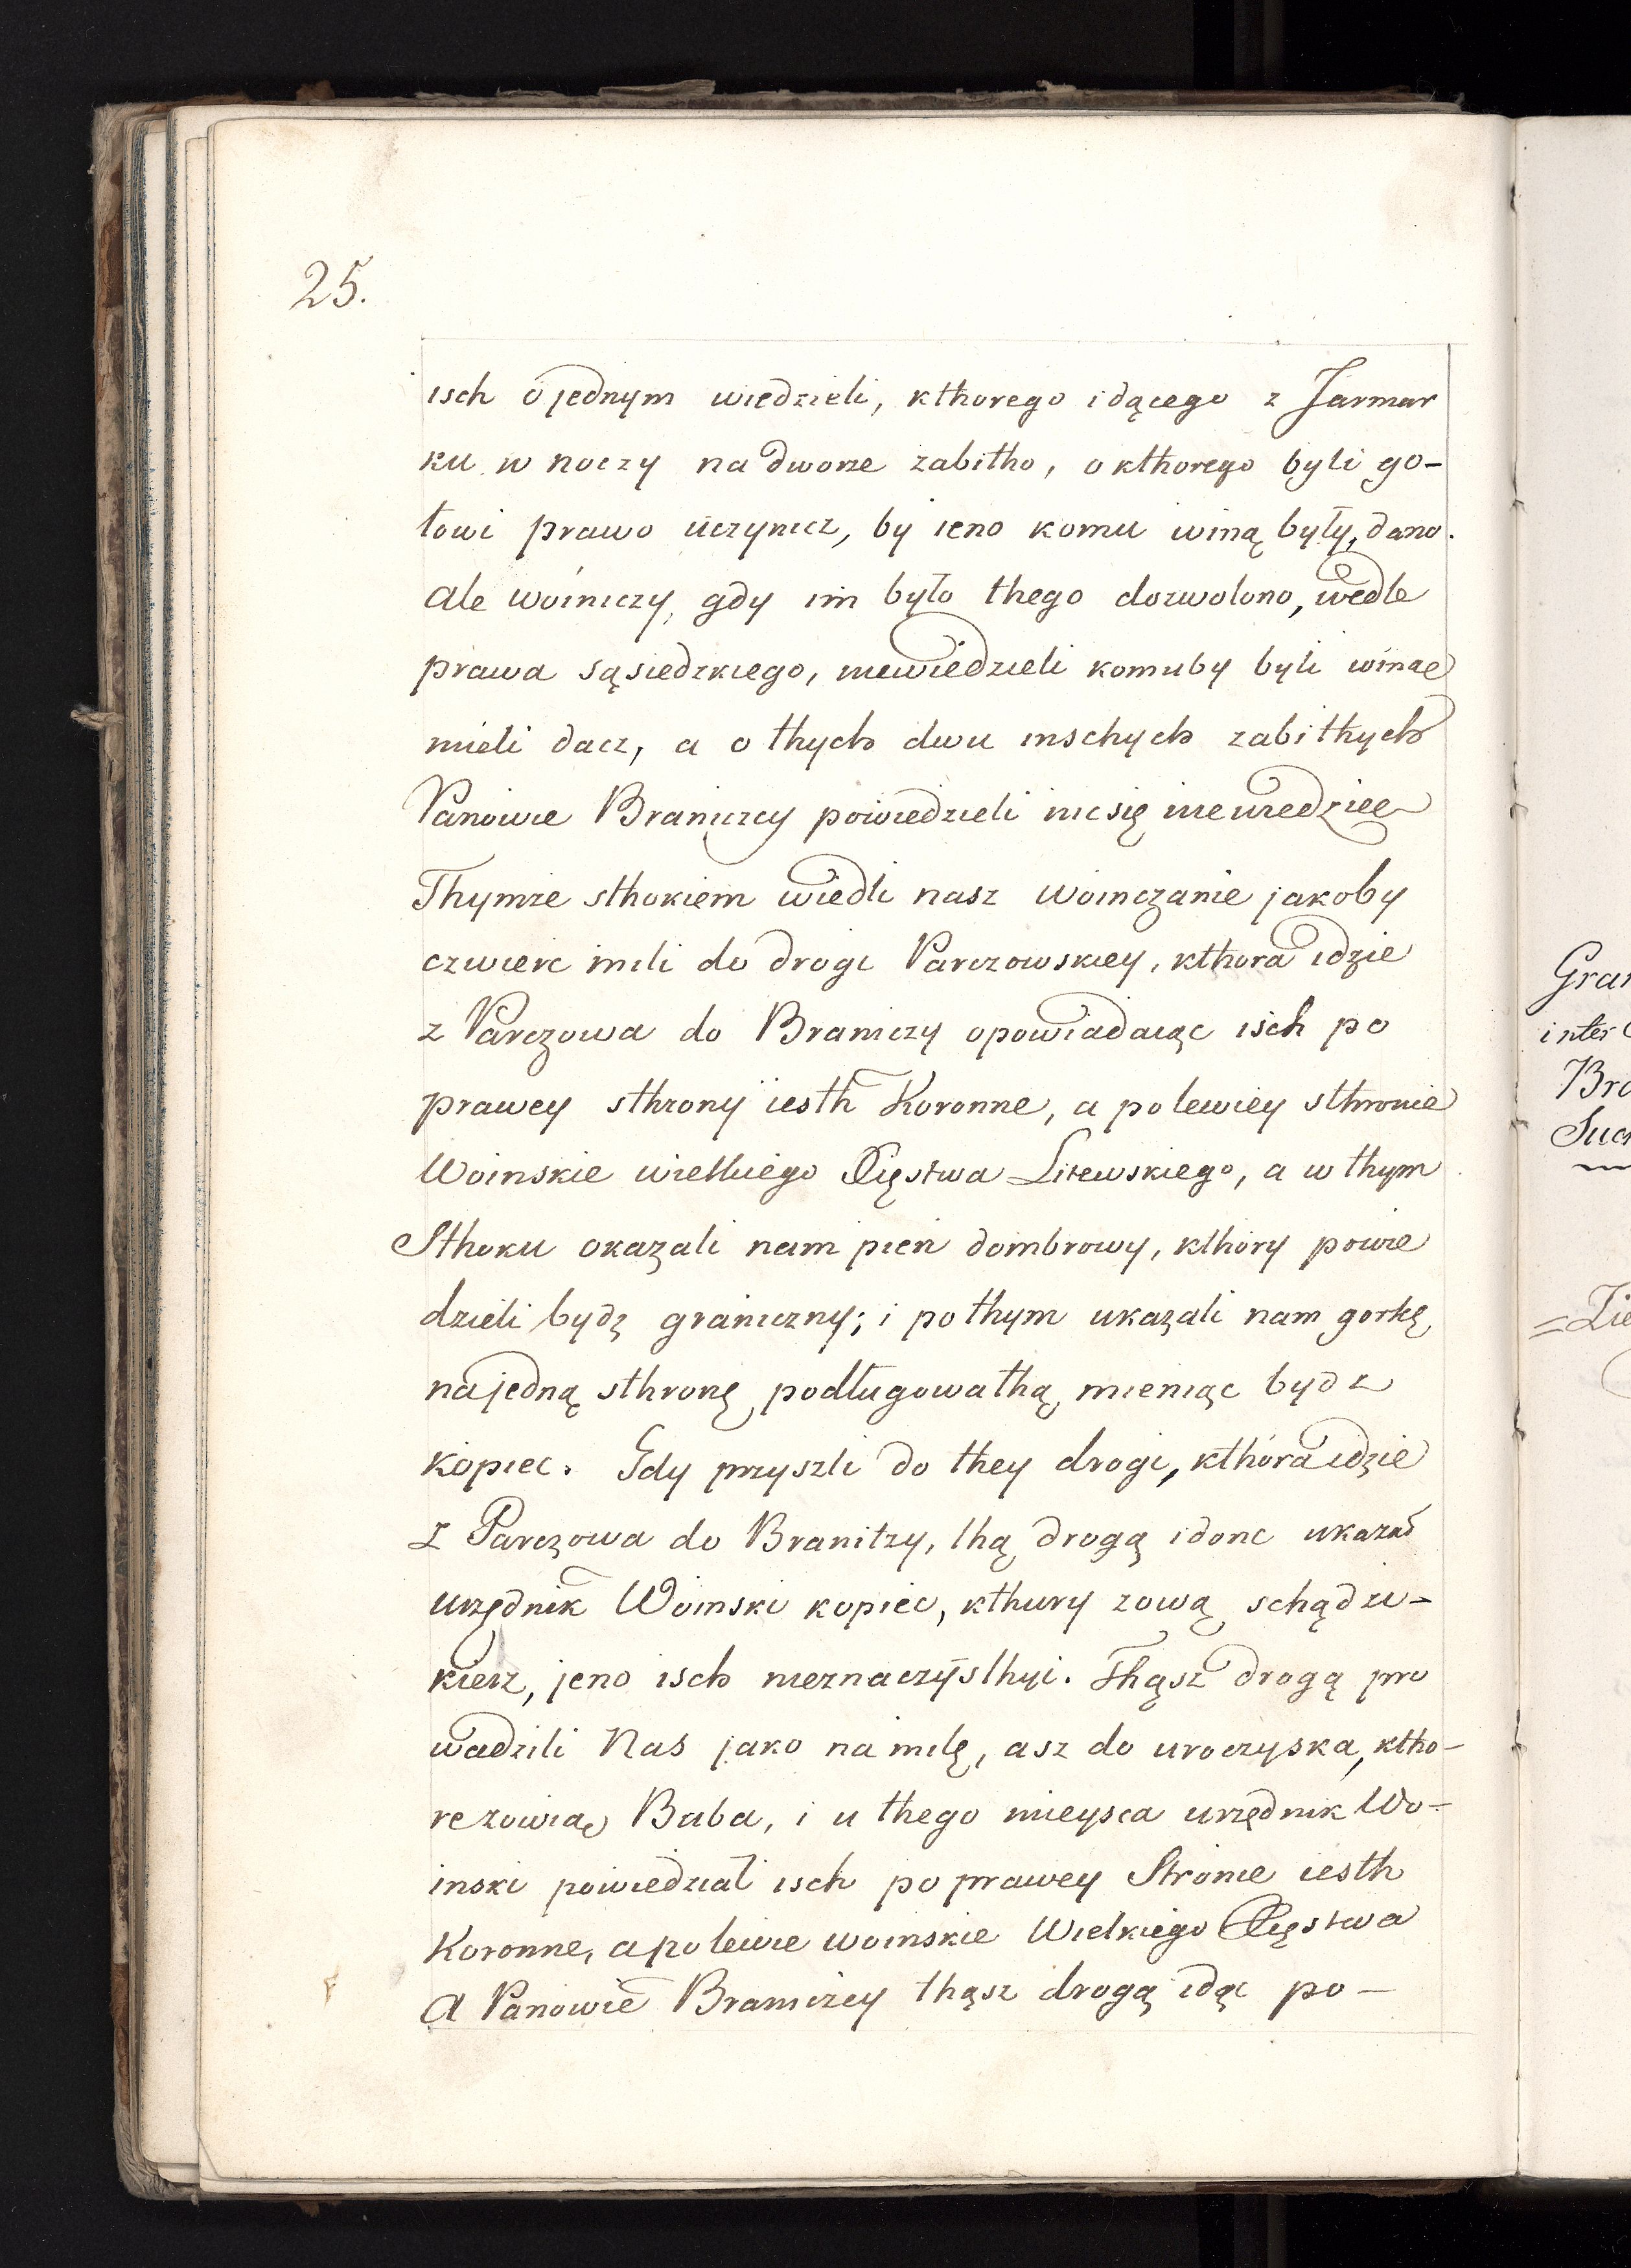 25.
isch o jednym wiedzieli, kthorego idącego z Jarmar
ku w noczy na dworze zabitho, o kthorego byli go-
towi prawo uczynicz, by ieno komu winą były, dano.
ale woiniczy, gdy im było thego dozwolono, wedle
prawa sąsiedzkiego, niewiedzieli komuby byli winae
mieli dacz, a o thych dwu inschych zabithych
Panowie Braniczcy powiedzieli nicsię niewiedziec
Thymże sthokiem wiedli nasz Woinczanie jakoby
czwierc mili do drogi Parczowskiey, kthora idzie
z Parczowa do Braniczy opowiadaiąc isch po
prawey sthrony iesth Koronne, a po lewiey sthronie
Woinskie wielkiego Xięstwa Litewskiego, a w thym
Sthoku okazali nam pień dombrowy, kthóry powie
dzieli bydz graniczny; i po thym ukazali nam gorkę
na jedną sthronę podługowathą mieniąc bydz
kopiec. Gdy przyszli do they drogi, kthóra idzie
z Parczowa do Branitzy, thą drogą idonc ukazał
urzędnik Woinski kopiec, kthury zową schądzi-
kierz, jeno isch nieznaczysthyi. Thąsz drogą pro
wadzili Nas jako na milę, asz do uroczyska, ktho-
re zowią Baba, i u thego mieysca urzędnik Wo-
inski powiedział isch po prawey Stronie iesth
Koronne, a po lewie woinskie Wielkiego Xięstwa
A Panowie Braniczcy thąsz drogą idąc po-
Gran
inter
Bra